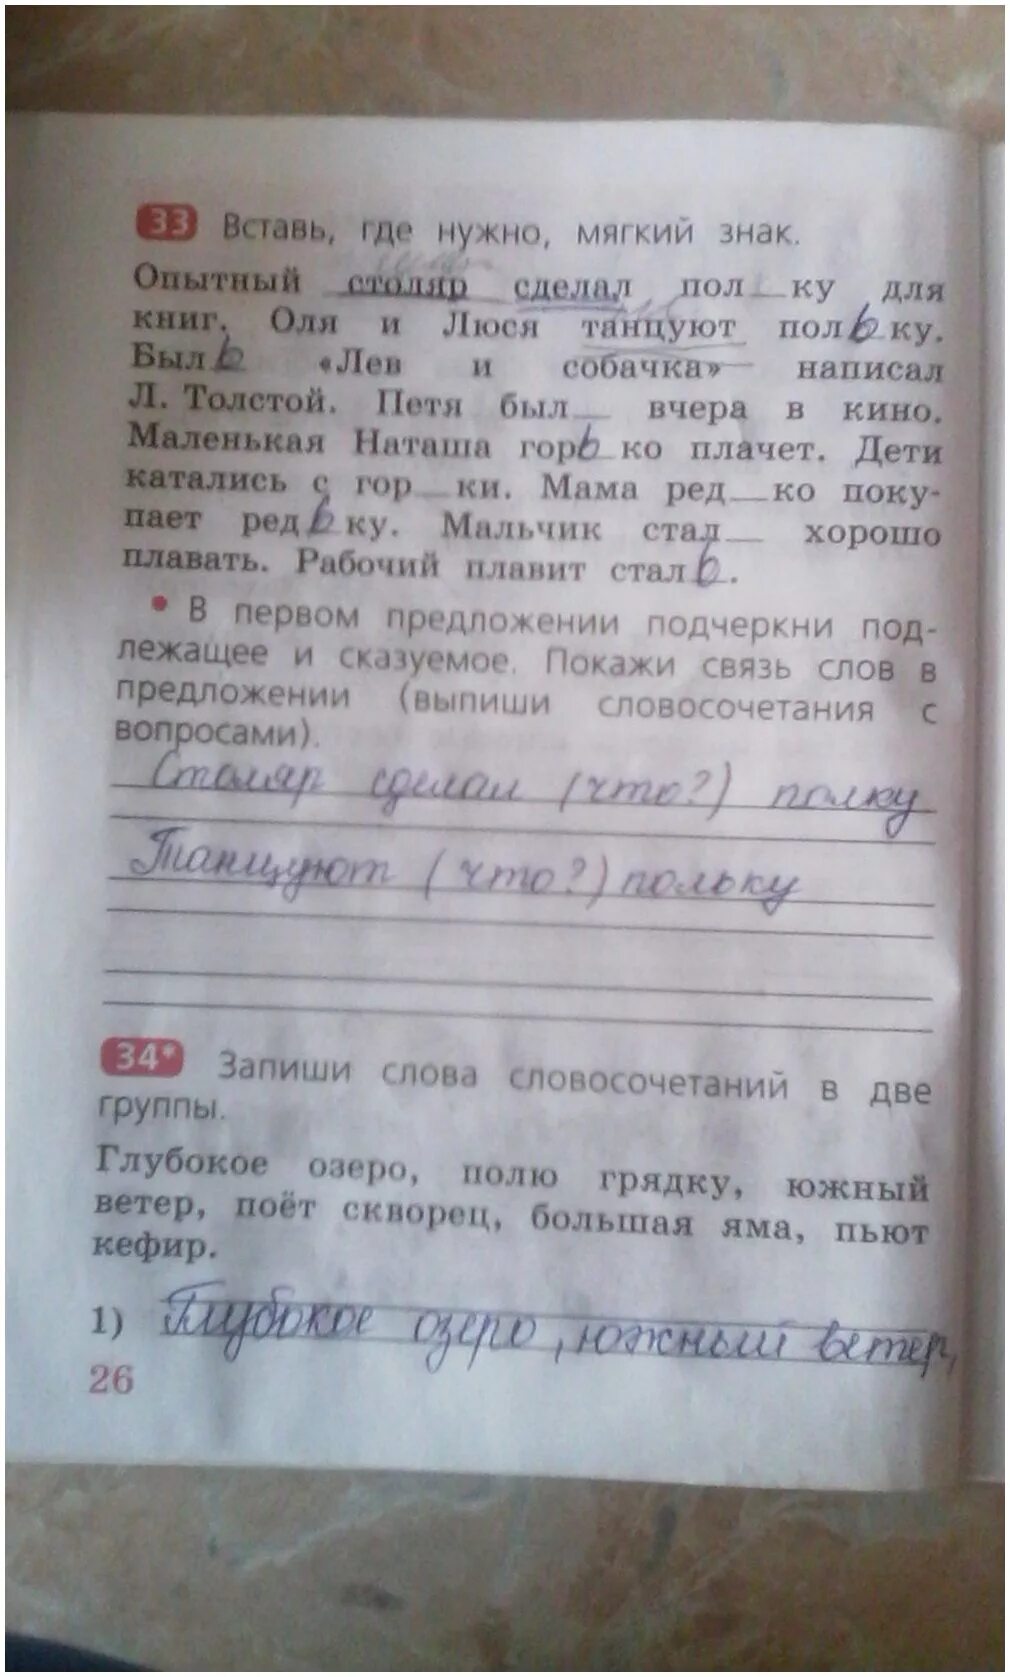 33 Вставь, где нужно, мягкий знак.
Опытный столяр сделал пол__ку для
книг. Оля и Люся танцуют польку.
Быль «Лев и собачка» написал
Л. Толстой. Петя был__ вчера в кино.
Маленькая Наташа горько плачет. Дети
катались с гор__ки. Мама ред__ко поку-
пает редьку. Мальчик стал__ хорошо
плавать. Рабочий плавит сталь.
• В первом предложении подчеркни под-
лежащее и сказуемое. Покажи связь слов в
предложении (выпиши словосочетания с
вопросами).
Столяр сделал (что?) полку
Танцуют (что?) польку
34* Запиши слова словосочетаний в две
группы.
Глубокое озеро, полю грядку, южный
ветер, поёт скворец, большая яма, пьют
кефир.
1) Глубокое озеро, южный ветер,
26